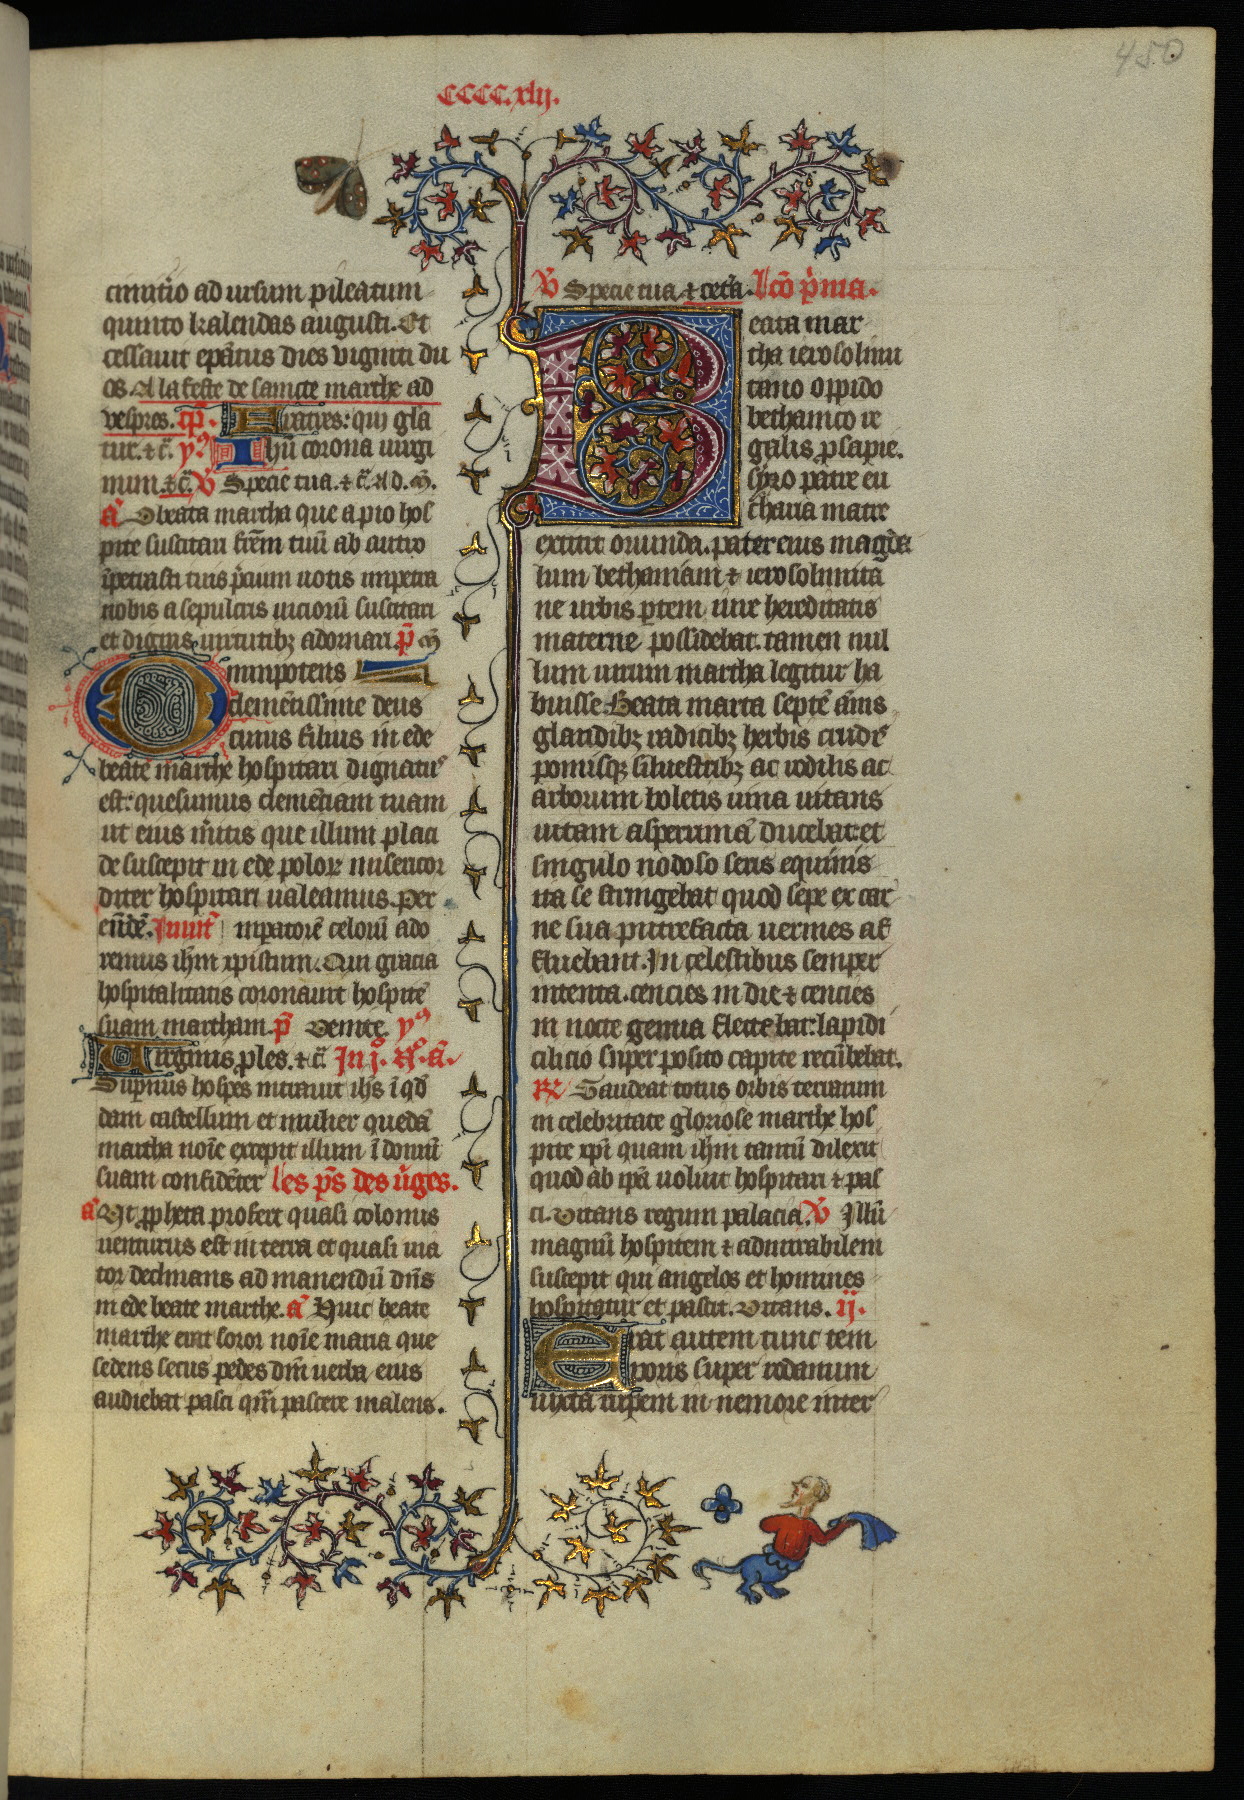 450
CCCC.xlij.
cimitio ad ursum pileatum
quinto kalendas augusti. Et
cessauit epatus dies viginti du
os. A la feste de saincte marthe ad
vespres. cap̄. Fratres: qui gla
tur. ⁊ c̄. ymꝰ Ihū corona uirgi
num ⁊ c̄. V̄ Specie tua. ⁊ c̄. Ad. m̄.
a O beata martha que a pio hos
pite suscitari frēm tuū ab antro
īpetrasti tuis p̄cium uotis impetra
nobis a sepulcris uiciorū suscitari
et dignis uirtutibꝫ adornari. p̄ m̄
Omnipotens
clementissime deus
cuius filius in ede
beate marthe hospitari dignatus
est: quesumus clemētiam tuam
ut eius mītis que illum placi
de suscepit in ede poloꝝ misericor
diter hospitari ualeamus. Per
eūdē. Inuit̄ inpatorē celorū ado
remus ihm xpistum. Qui gracia
hospitalitatis coronauit hospitē
suam martham. p̄ Venite. ymꝰ
Virginis ples. ⁊ c̄ In j. n̄. a.
Supnus hospes intrauit ihs ī qd
dam castellum et mulier quedā
martha noīe excepit illum ī domū
suam confidēter les ps des uges.
a Vt ꝓpheta profert quasi colonus
uenturus est in terra et quasi uia
tor declinans ad manendū dns
in ede beate marthe. a Huic beate
marthe erat soror noīe maria que
sedens secus pedes dni uerba eius
audiebat pasci qm̄ pascere malens.
V̄ Specie tua ⁊ cetā. Lcō p̄ma.
Beata mar
tha ierosolimi
tano oppido
bethanico re
galis ꝓsapie.
syro patre eu
charia matre
extitit oriunda. pater eius magda
lum bethaniam ⁊ ierosolimita
ne urbis ꝑtem iure hereditatis
materne possidebat. tamen nul
lum uirum martha legitur ha
buisse. Beata marta septē annis
glandibꝫ radicibꝫ herbis crudis
pomisqꝫ siluestribꝫ ac iodilis ac
arborum boletis uina uitans
uitam asperimā ducebat: et
singulo nodoso setis equinis
ita se stringebat quod sepe ex car
ne sua putrefacta uermes af
fluebant. In celestibus semper
intenta. cencies in die ⁊ cencies
in nocte genua flectebat: lapidi
cilicio super posito capite recūbebat.
℟ Gaudeat totus orbis terrarum
in celebritate gloriose marthe hos
pite xpi quam ihm tantū dilexit
quod ab ipā uoluit hospitari ⁊ pas
ci. Vitans regum palacia. V̄ Illū
magnū hospitem ⁊ admirabilem
suscepit qui angelos et homines
hospitatur et pascit. Vitans. ij.
Erat autem tunc tem
poris super rodanum
iuxta rupem in nemore inter